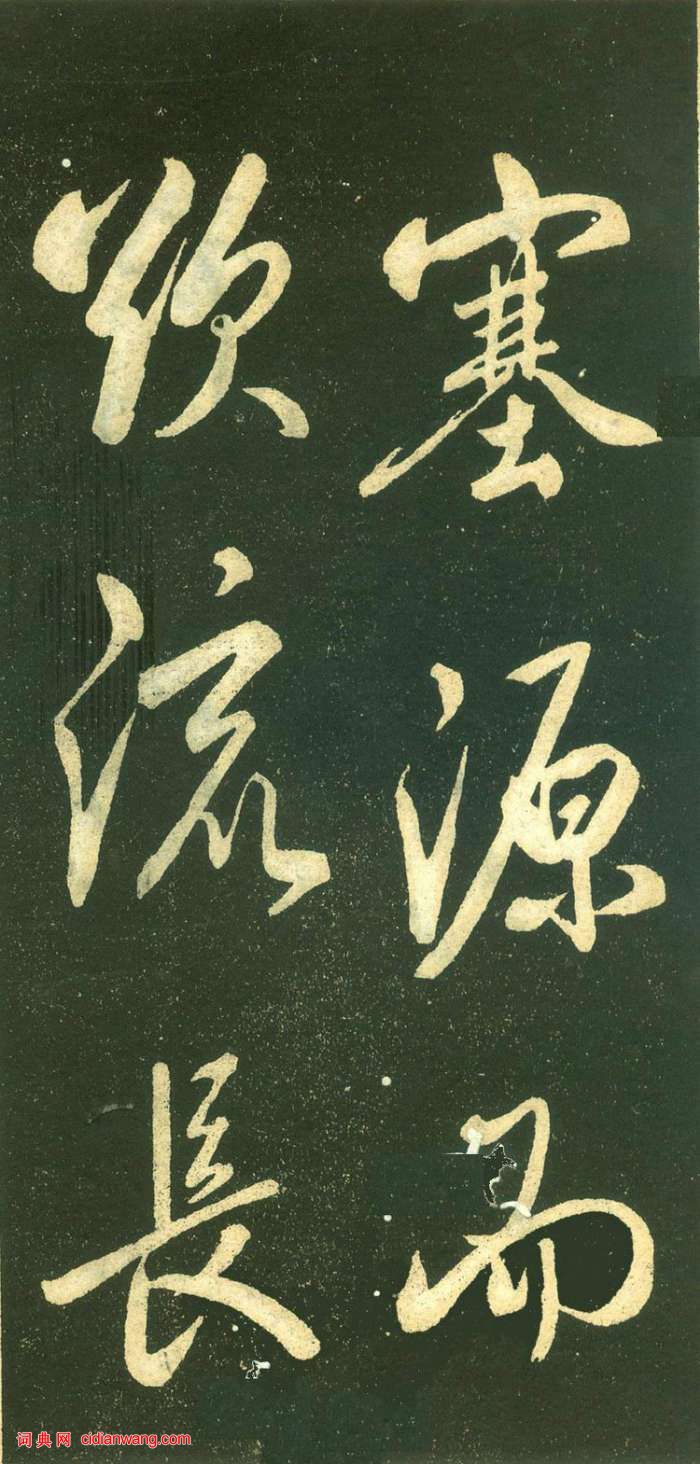 塞源而
欲流長
词典网 cidianwang.com